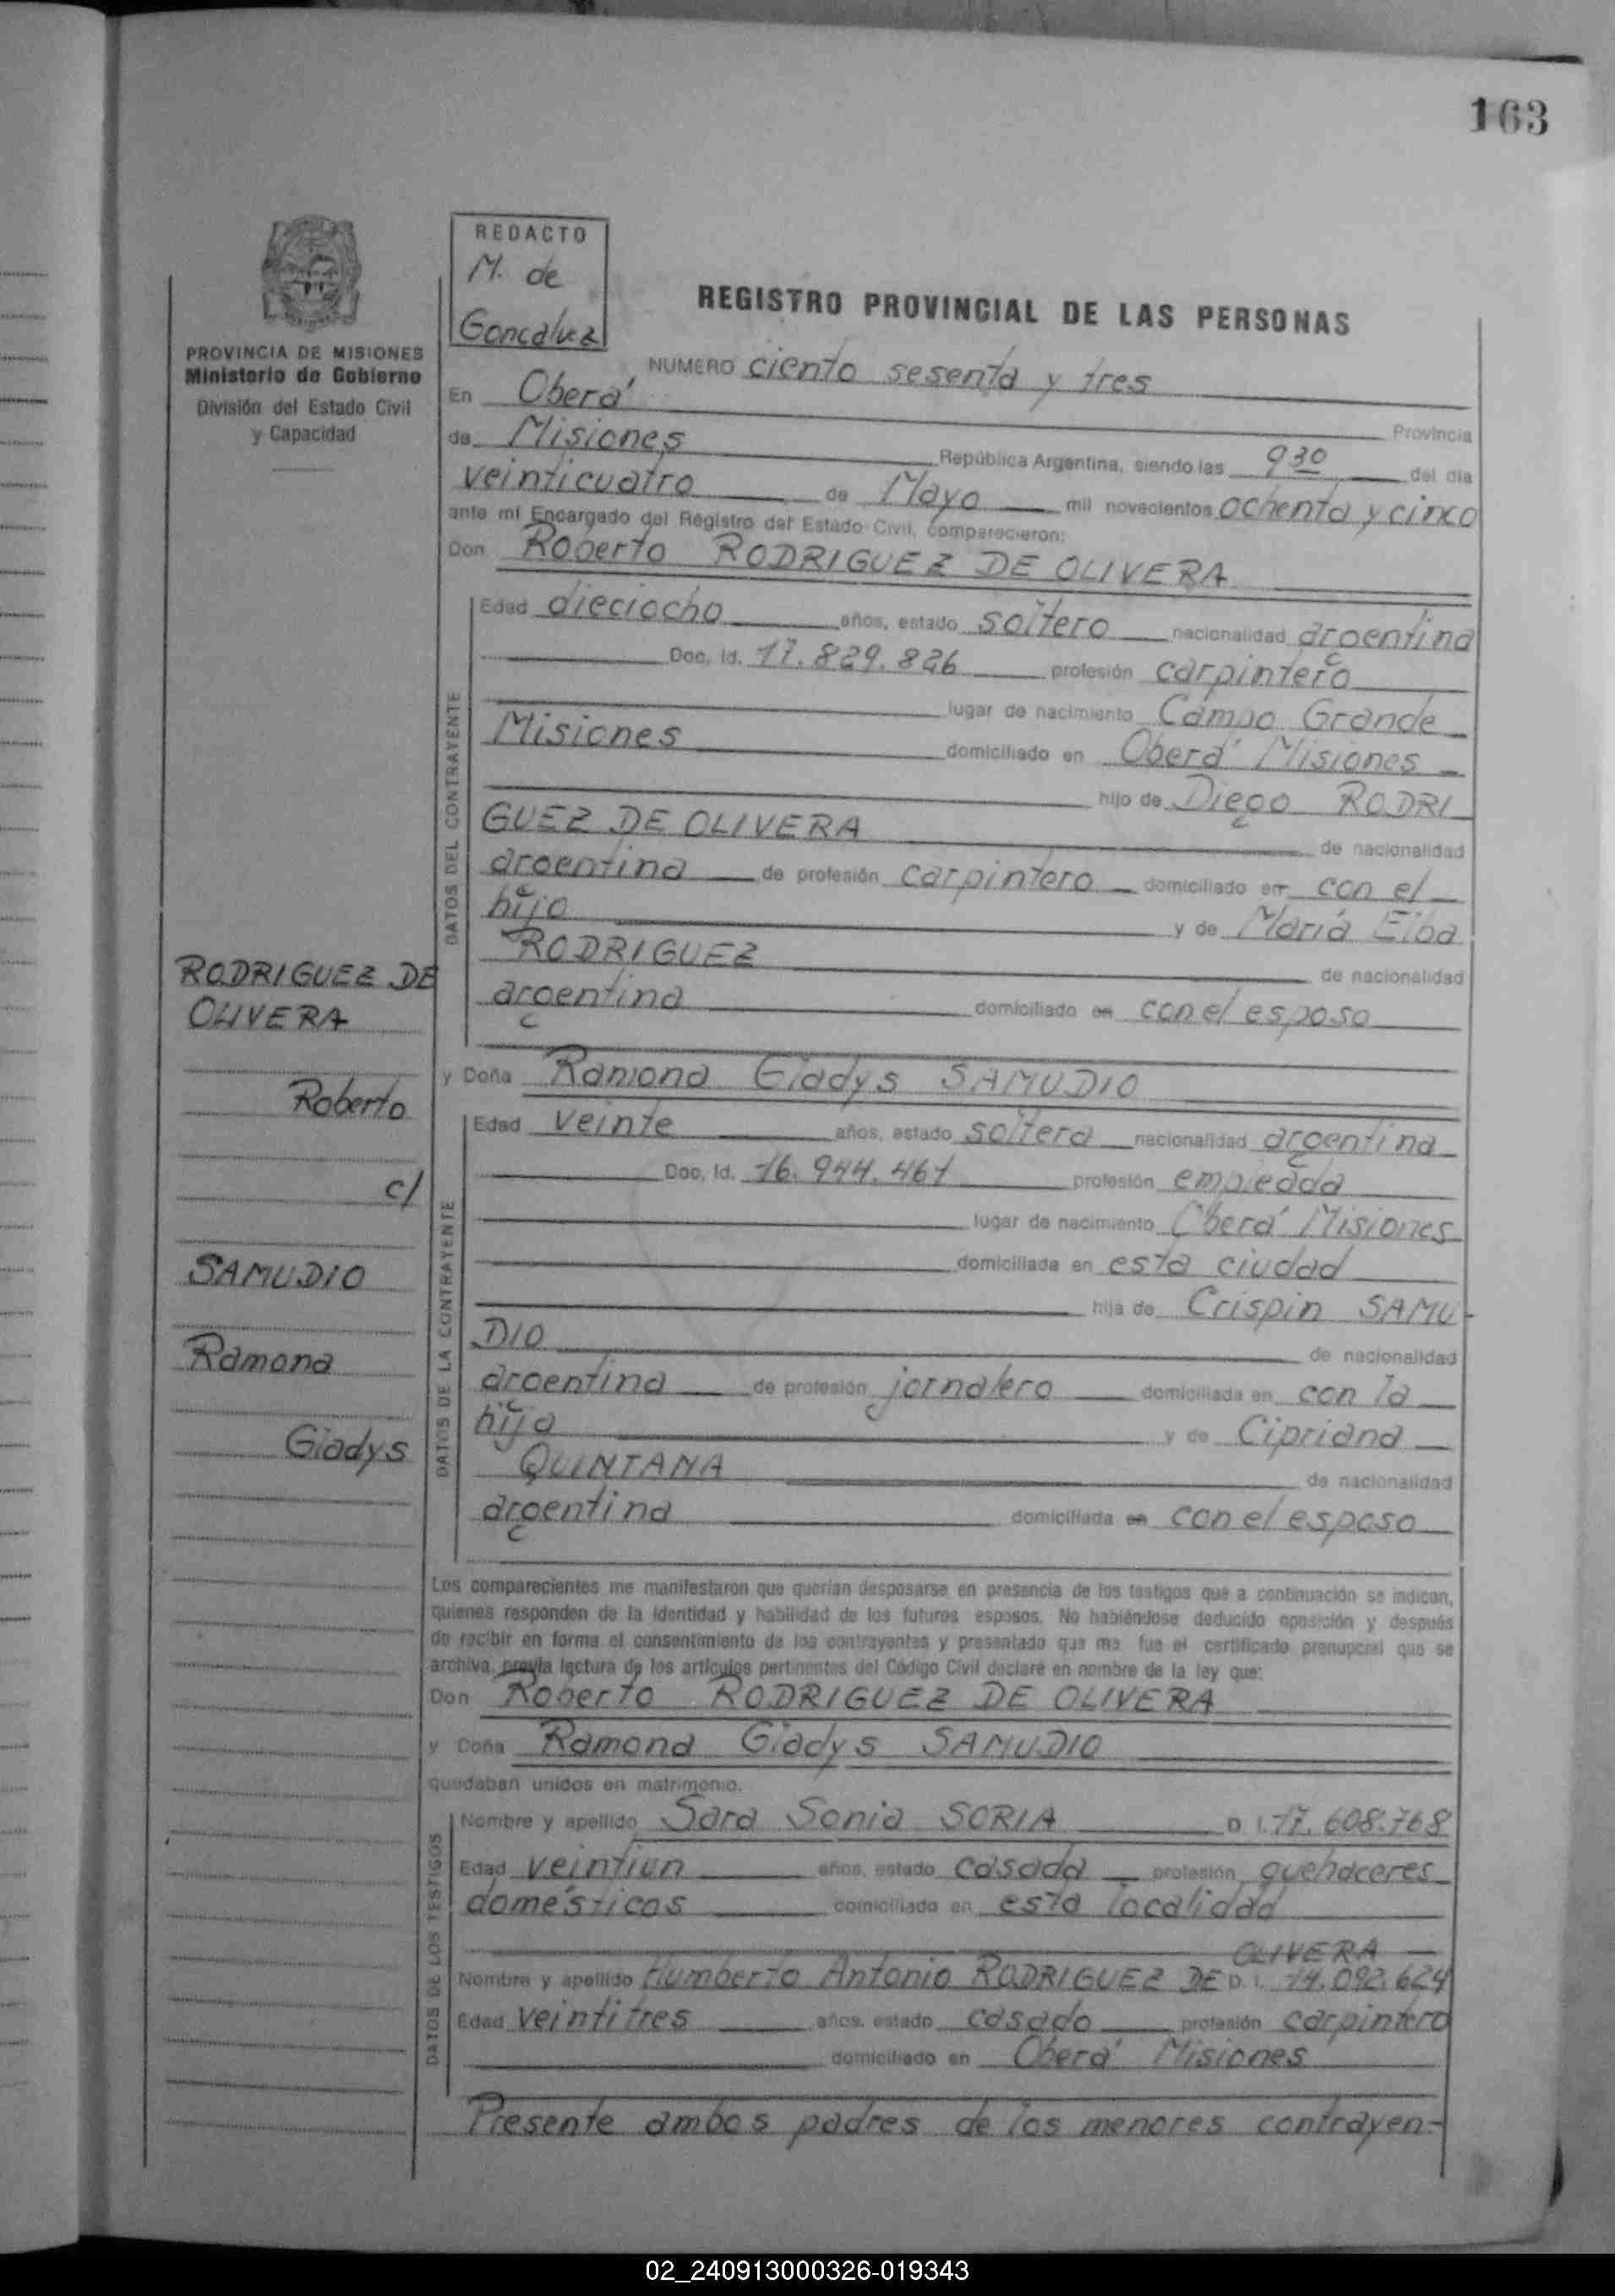 163
REDACTO
M. de
Goncalvez
PROVINCIA DE MISIONES
Ministerio de Gobierno
División del Estado Civil
y Capacidad
REGISTRO PROVINCIAL DE LAS PERSONAS
NUMERO ciento sesenta y tres
En Oberá Provincia
de Misiones República Argentina, siendo las 9 30 del día
veinticuatro de Mayo mil novecientos ochenta y cinco
ante mí Encargado del Registro del Estado Civil, comparecieron:
Don Roberto RODRIGUEZ DE OLIVERA
DATOS DEL CONTRAYENTE
Edad dieciocho años, estado soltero nacionalidad argentina
Doc. Id. 17.829.826 profesión carpintero
lugar de nacimiento Campo Grande
Misiones domiciliado en Oberá Misiones
hijo de Diego RODRI
GUEZ DE OLIVERA de nacionalidad
argentina de profesión carpintero domiciliado en con el
hijo y de María Elba
RODRIGUEZ de nacionalidad
argentina domiciliado en con el esposo
y Doña Ramona Gladys SAMUDIO
DATOS DE LA CONTRAYENTE
Edad veinte años, estado soltera nacionalidad argentina
Doc. Id. 16.944.461 profesión empleada
lugar de nacimiento Oberá Misiones
domiciliada en esta ciudad
hija de Crispin SAMU-
DIO de nacionalidad
argentina de profesión jornalero domiciliada en con la
hija y de Cipriana
QUINTANA de nacionalidad
argentina domiciliada en con el esposo
RODRIGUEZ DE
OLIVERA
Roberto
c/
SAMUDIO
Ramona
Gladys
Los comparecientes me manifestaron que querían desposarse en presencia de los testigos que a continuación se indican,
quienes responden de la identidad y habilidad de los futuros esposos. No habiéndose deducido oposición y después
de recibir en forma el consentimiento de los contrayentes y presentado que me fue el certificado prenupcial que se
archiva, previa lectura de los artículos pertinentes del Código Civil declaré en nombre de la ley que:
Don Roberto RODRIGUEZ DE OLIVERA
y Doña Ramona Gladys SAMUDIO
quedaban unidos en matrimonio.
DATOS DE LOS TESTIGOS
Nombre y apellido Sara Sonia SORIA D. I. 17.608.768
Edad veintiun años, estado casada profesión quehaceres
domésticos domiciliado en esta localidad
OLIVERA
Nombre y apellido Humberto Antonio RODRIGUEZ DE D. I. 14.092.624
Edad veintitres años, estado casado profesión carpintero
domiciliado en Oberá Misiones
Presente ambos padres de los menores contrayen-
02_240913000326-019343